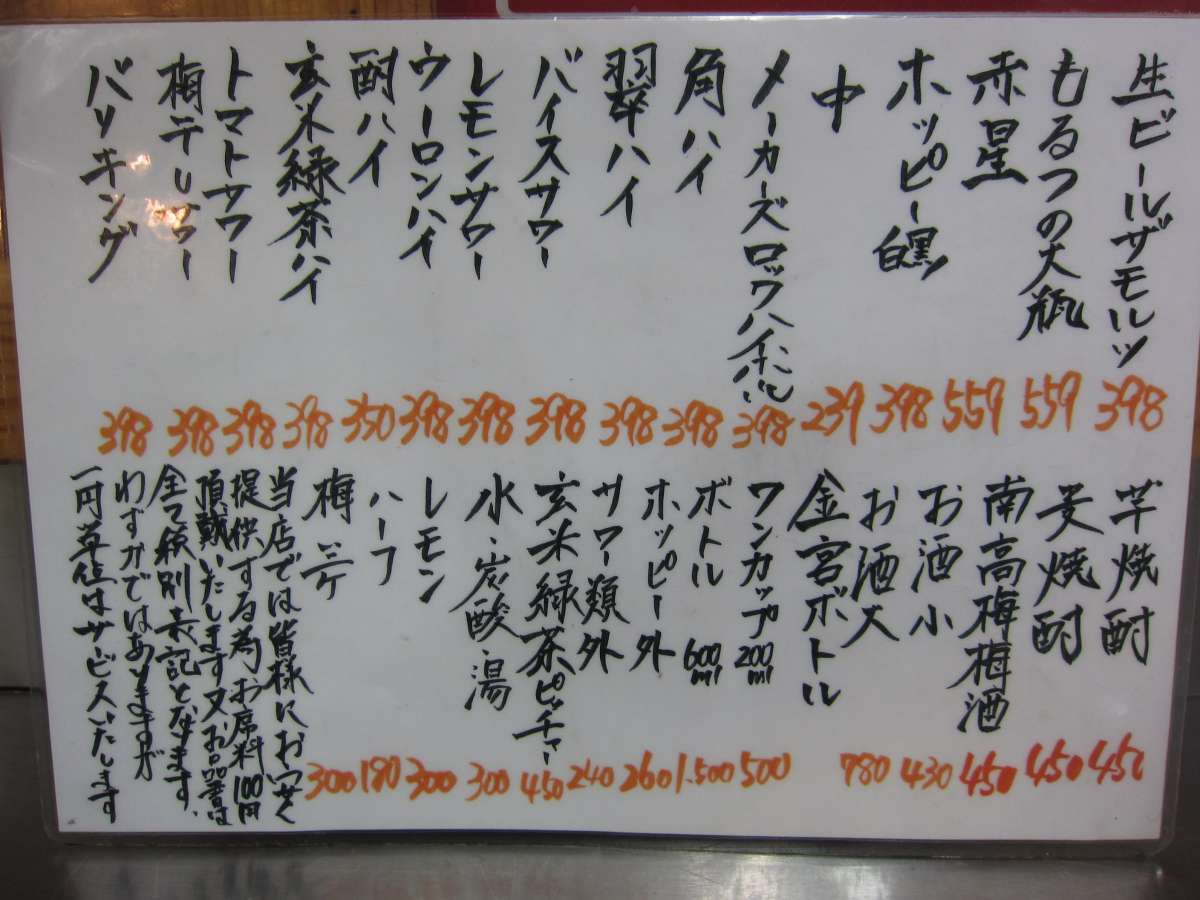 生ビールザモルツ 398
もるつの大瓶 559
赤星 559
ホッピー白黒 398
中 239
メーカーズロックハイボール 398
角ハイ 398
翠ハイ 398
バイスサワー 398
レモンサワー 398
ウーロンハイ 398
酎ハイ 350
玄米緑茶ハイ 398
トマトサワー 398
梅干しサワー 398
バリキング 398
芋焼酎 450
麦焼酎 450
南高梅梅酒 450
お酒小 430
お酒大 780
金宮ボトル
ワンカップ200ml 500
ボトル600ml 1.500
ホッピー外 260
サワー類外 240
玄米緑茶ピッチャー 450
水・炭酸・湯 300
レモン 300
ハーフ 180
梅三ケ 300
当店では皆様にお安く
提供する為お席料100円
頂戴いたします又お品書は
全て税別表記となります、
わずかではありますが
一円単位はサービスいたします